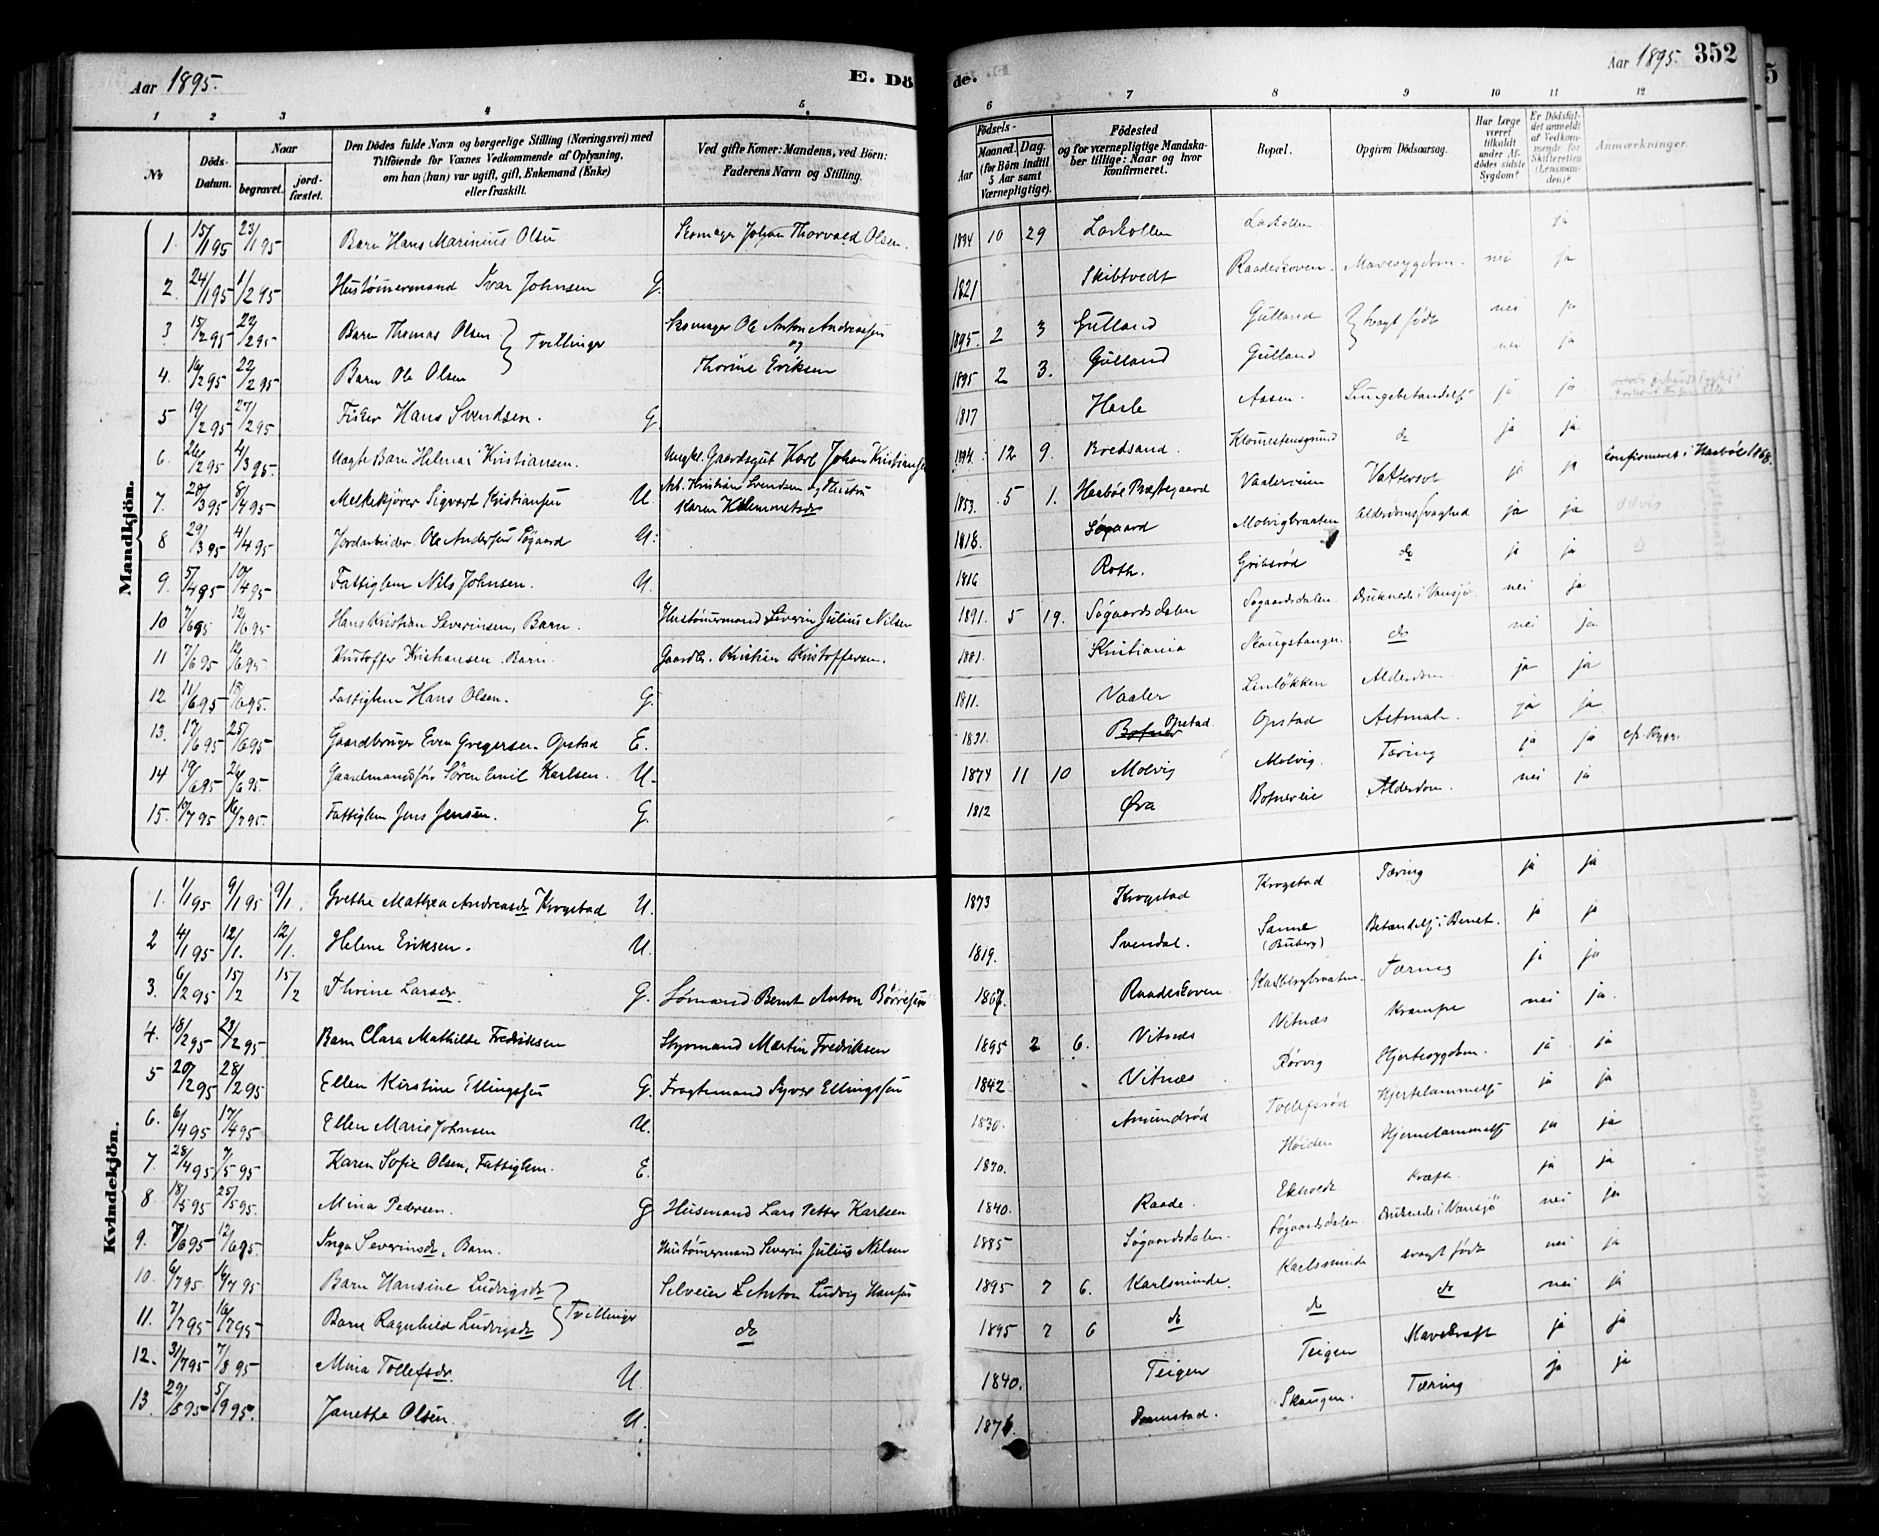 Aar 1895.
E. Dö
de.
Aar 1895. 352
1 2 3 4 5 6 7 8 9 10 11 12
No
Döds-Datum.
Naar
begravet. jordfæstet.
Den Dödes fulde Navn og borgerlige Stilling (Næringsvei) med Tilföiende for Voxnes Vedkommende af Oplysning, om han (hun) var ugift, gift, Enkemand (Enke) eller fraskilt.
Ved gifte Koner: Mandens, ved Börn: Faderens Navn og Stilling.
Födsels-
Aar
Maaned. Dag.
(for Börn indtil 5 Aar samt Værnepligtige).
Födested og for værnepligtige Mandskaber tillige: Naar og hvor konfirmeret.
Bopæl.
Opgiven Dödsaarsag.
Har Læge været tilkaldt under Afdödes sidste Sygdom?
Er Dödsfaldet anmeldt af Vedkommende for Skifteretten (Lensmanden)?
Anmærkninger.
Mandkjön.
1. 15/1 95 23/1 95 Barn Hans Marinius Olsen Skomager Johan Thorvald Olsen. 1894 10 29 Larkollen Larkollen ja
2. 24/1 95 1/2 95 Hustømermand Ivar Johnsen G. 1821 Skibtvedt Raadeskoven. Mavesygdom. nei ja
3 15/2 95 22/2 95 Barn Thomas Olsen } Tvillinger Skomager Ole Anton Andreassen og 1895. 2 3 Gülland Gülland } svagt født nei ja
4. 16/2 95 22/2 95 Barn Ole Olsen Thorine Eriksen 1895 2 3. Gülland Gülland nei ja
5 19/2 95 27/2 95 Fisker Hans Svendsen. G. 1817 Aasen. Lungebetændelse ja ja
6. 26/2 95 4/3 95. Uægte Barn Helmar Kristiansen. Ungkl. Gaardsgut Karl Johan Kristiansen 1894. 12 9. Bredsand. do ja ja
7. 28/3 95 8/4 95 Melkekjører Sigvart Kristiansen U Kristian Svendsen og Hustru Maren Klemmetsdr 1853. 5 1. Vaalerveien Vattersot ja ja Confirmeret i 1868.
8 29/3 95 4/4 95. Jordarbeider. Ole Andersen Søgaard U. 1818. Søgaard Molvigbraaten Alderdomssvaghed ja ja
9. 5/4 95 10/4 95 Fattiglem Nils Johnsen. U. 1816 Roth. do ja ja
10 7/6 95 12/6 95 Hans Kristian Severinsen, Barn. Hustømermand Severin Julius Nilsen 1891. 5 19. Søgaardsdalen Søgaardsdalen. Druknede i Vansjø. nei ja
11 7/6 95 12/6 95. Kristoffer Kristiansen. Barn. Gaardbr. Kristian Kristoffersen. 1881. Kristiania do nei ja
12 11/6 95 15/6 95. Fattiglem Hans Olsen. G. 1811. Vaaler Linløkken Alderdom ja ja
13. 17/6 95 25/6 95 Gaardbruger Even Gregersen Opstad E. 1831. Opstad. Opstad Astmah. ja ja
14 19/6 95 26/6 95. Gaardmandssøn Søren Emil Karlsen. U. 1874 11 10 Molvig Molvig. Tæring ja ja
15. 10/7 95 16/7 95. Fattiglem Jens Jensen. G. 1812 Øra Botnereie Alderdom. nei ja
Kvindekjön.
1. 1/1 95 9/1 95 9/1. Grethe Mathea Andreasdr Krogstad U. 1873 Krogstad Krogstad Tæring ja ja
2 4/1 95 12/1. 12/1. Helene Eriksen. U. 1819. Svendal. Sanne Betændelse i Benet. ja ja
3. 6/2 95 15/2 15/2 Thorine Larsdr. G. Sømand Bernt Anton Børresen 1867. Raadeskoven Karlbergbraaten. Tæring ja ja
4. 18/2 95 23/2 95. Barn Clara Mathilde Fredriksen Styrmand Martin Fredriksen 1895 2 6. Vitnæs Vitnæs Krampe nei ja.
5 20/2 95 28/2 95 Ellen Kirstine Ellingsen G. Fragtemand Syver Ellingsen 1842 Vitnæs Rørvig Hjertesygdom. ja ja
6. 6/4 95 17/4 95 Ellen Marie Johnsen U. 1830. Amundrød Tollefsrød Hjertelammelse ja ja
7. 28/4 95 7/5 95 Karen Sofie Olsen, Fattiglem. E. Hjernelammelse ja ja
8. 18/5 95 25/5 95. Mina Pedersen. G Husmand Lars Petter Karlsen 1840. Raade. Ekholt Kræft ja ja
9. 7/6 95 12/6 95 Inga Severinsdr, Barn. Hustømermand Severin Julius Nilsen 1885 Søgaardsdalen. Søgaardsdalen. Druknede i Vansjø nei ja
10. 6/7 95 16/7 95 Barn Hansine Ludvigsdr } Tvillinger Selveier L Anton Ludvig Hansen 1895 7 6. Karlsminde. Karlsminde svagt født nei ja
11. 7/7 95 16/7 95 Barn Ragnhild Ludvigsdr do 1895 7 6 do do do nei ja
12. 31/7 95 7/8 95 Mina Tollefsdr. U. 1840. Teigen Teigen Mavekræft ja ja
13. 29/8 95 5/9 95. Janetta Olsen U. 1876. Skaugen. Tæring ja ja